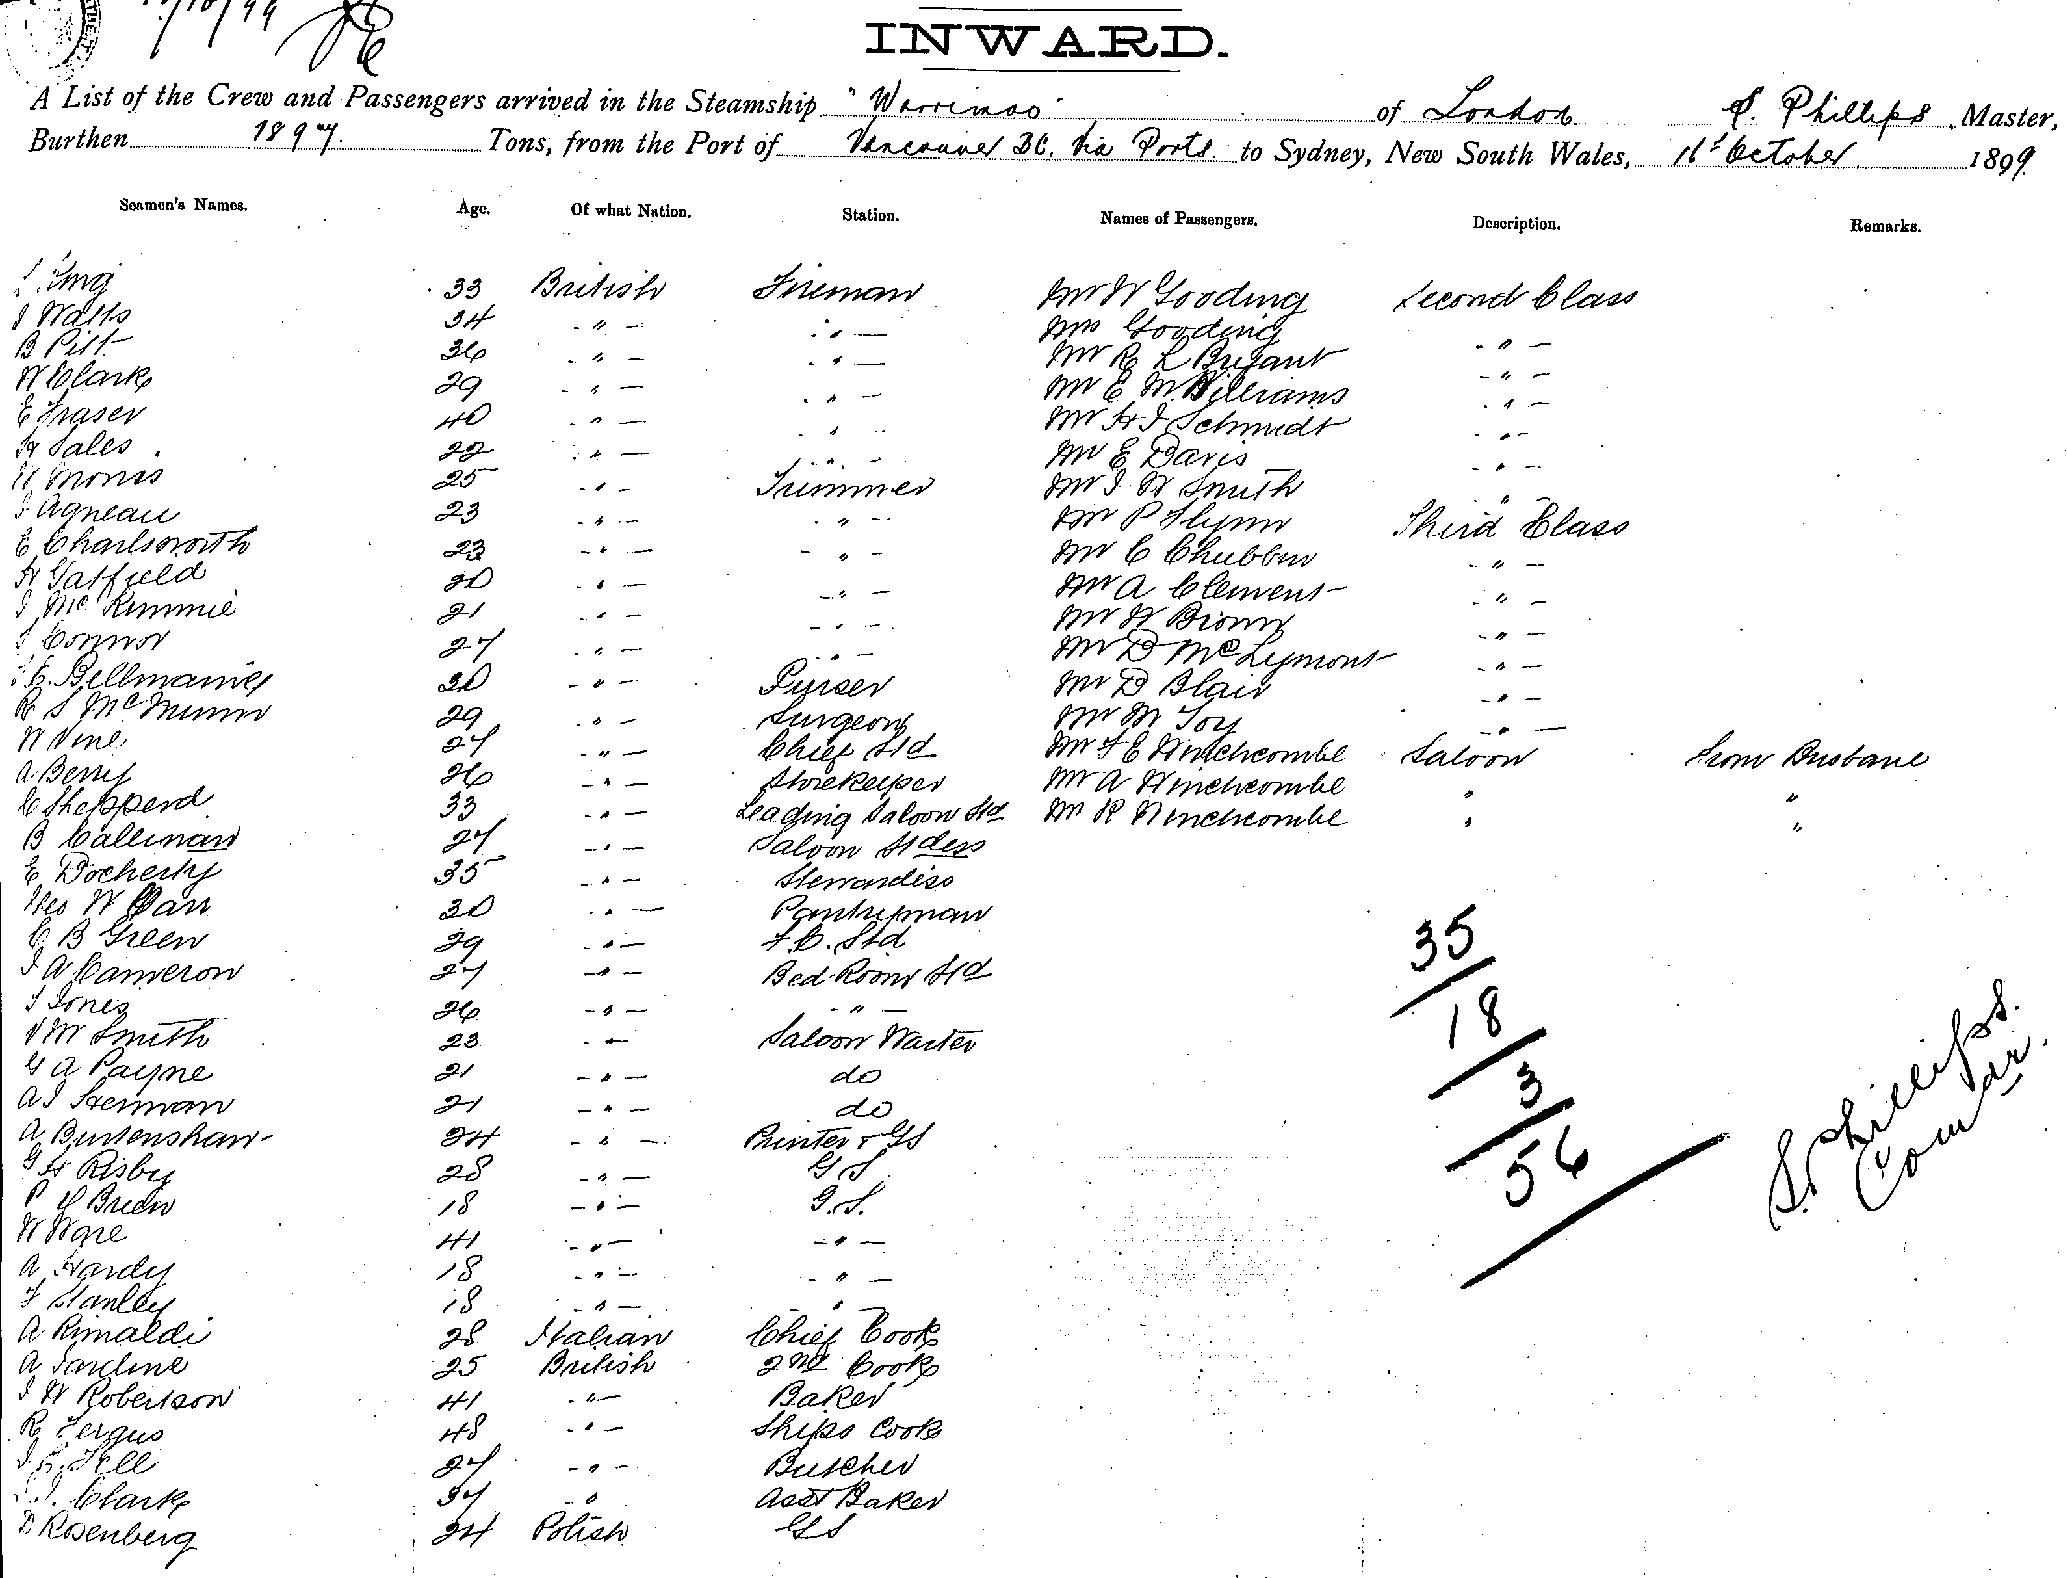 INWARD.
A List of the Crew and Passengers arrived in the Steamship "Warrimoo" of London S. Phillips, Master,
Burthen 1897 Tons, from the Port of Vancouver BC. Via Ports to Sydney, New South Wales, 16th October 1899.
Seamen's Names. Age. Of what Nation. Station. Names of Passengers. Description. Remarks.
King 33 British Fireman Mr W Gooding Second Class
J Watts 34 - " - - " - Mrs Gooding
B Pitt 36 - " - - " - Mr R L Bryant - " -
W Clark 29 - " - - " - Mr E M Williams - " -
E Fraser 40 - " - - " - Mr H J Schmidt - " -
H Sales 22 - " - - " - Mr E Davis - " -
H Morris 25 - " - Trimmer Mr J W Smith - " -
J Agneau 23 - " - - " - Mr P Flynn Third Class
E Charlsworth 23 - " - - " - Mr C Chubbin - " -
H Gatfield 20 - " - - " - Mr A Clement - " -
J McKimmie 21 - " - - " - Mr W Brown - " -
J Connor 27 - " - - " - Mr D McLymont - " -
Bellmaine 30 - " - Purser Mr D Blair - " -
R S McMunn 29 - " - Surgeon Mr M Toy - " -
W Vine 27 - " - Chief Std Mr F E Winchcombe Saloon from Brisbane
A Berry 26 - " - Storekeeper Mr A Winchcombe " "
C Shepperd 33 - " - Leading Saloon Std Mr R Winchcombe " "
B Callinan 27 - " - Saloon Stdess
E Docherty 35 - " - Stewardiss
Geo W Carr 30 - " - Pantryman
C B Green 29 - " - F.C. Std
J A Cameron 27 - " - Bed Room Std
J Jones 26 - " - - " -
V M Smith 23 - " - Saloon Waiter
G A Payne 21 - " - do
A J Heiman 21 - " - do
A Burtenshaw 24 - " - Printer & GS
G H Risby 28 - " - G S
P O'Brien 18 - " - G.S.
W Ware 41 - " - - " -
A Hardy 18 - " - - " -
F Stanley 18 - " - - " -
A Rinaldi 28 Italian Chief Cook
A Jardine 25 British 2nd Cook
J W Robertson 41 - " - Baker
R Fergus 48 - " - Ships Cook
Fell 27 - " - Butcher
J. Clark 37 - " Asst Baker
Rosenberg 24 Polish GS
35
18
3
56
S. Phillips.
Comdr.